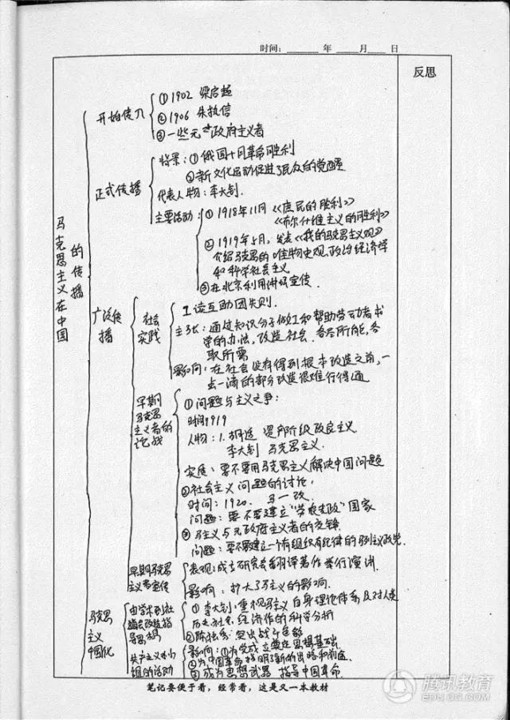 时间： 年 月 日
反思
马克思主义在中国的传播
开始传入
①1902 梁启超
②1906 朱执信
③一些无政府主义者
正式传播
背景：①俄国十月革命胜利
②新文化运动促进了民众的觉醒
代表人物：李大钊
主要活动：
①1918年11月《庶民的胜利》
《布尔什维主义的胜利》
②1919年5月，发表《我的马克思主义观》
介绍马克思的唯物史观、政治经济学
和科学社会主义
③在北京利用讲坛宣传
广泛传播
社会实践
工读互助团失败
主张：通过知识分子做工和帮助劳动者求
学的办法，改造社会，各尽所能，各
取所需
影响：在社会没有得到根本改造之前，一
点一滴的部分改造很难行得通
早期马克思主义者的论战
①问题与主义之争：
时间1919
人物：1.胡适 资产阶级改良主义
李大钊 马克思主义
实质：要不要用马克思主义解决中国问题
②社会主义问题的讨论：
时间：1920
问题：要不要建立"劳农专政"国家
③马主义与无政府主义者的交锋
问题：要不要建立一个有组织有纪律的
早期马克思主义者宣传
表现：成立研究会翻译著作举行演讲
影响：扩大了马主义的影响
马克思主义
由学术到社
指导思想
共产主义小组的活动
①李大钊：重视马主义自身理论体系及对人类
历史社会、经济作的科学分析
②陈独秀：
影响：①为党成立奠定思想基础
②为中国革命指明新的出路和前途
③成为思想武器 指导中国革命
笔记要便于看，经常看，这是又一本教材
腾讯教育